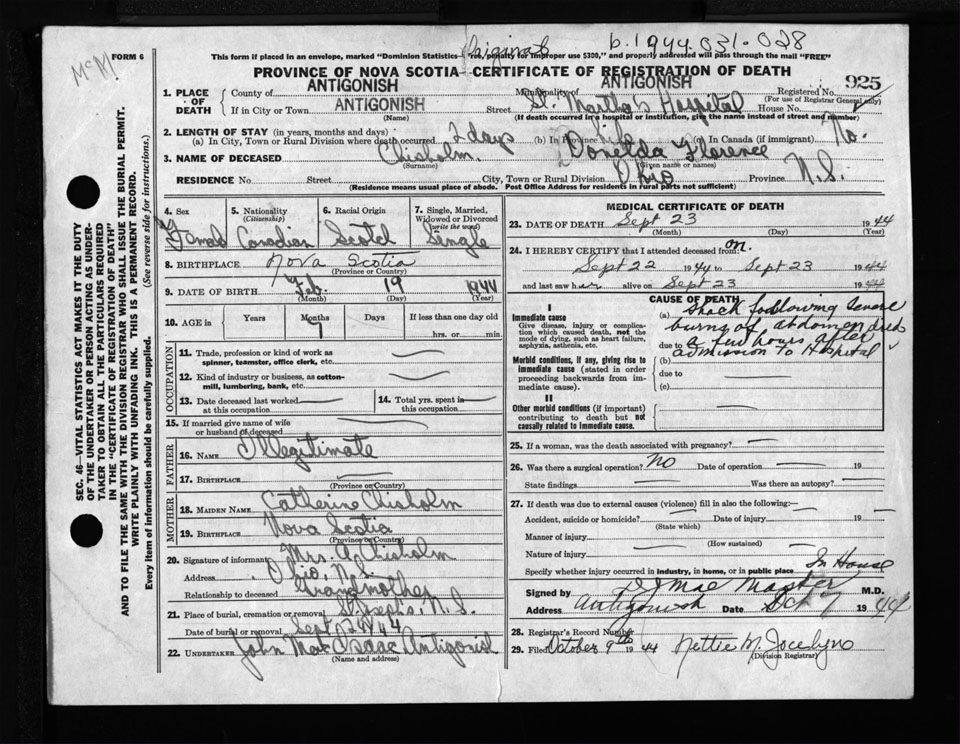 b.1944.031.028
McM
FORM 6
Original
This form if placed in an envelope, marked "Dominion Statistics—Free, (penalty for improper use $300)," and properly addressed will pass through the mail "FREE"
PROVINCE OF NOVA SCOTIA—CERTIFICATE OF REGISTRATION OF DEATH
925
1. PLACE OF DEATH
County of ANTIGONISH Municipality of ANTIGONISH Registered No.
(For use of Registrar General only)
If in City or Town ANTIGONISH Street St. Martha's Hospital House No.
(Name) (If death occurred in a hospital or institution, give the name instead of street and number)
2. LENGTH OF STAY (in years, months and days)
(a) In City, Town or Rural Division where death occurred 2 days (b) In Province Life (c) In Canada (if immigrant) No
3. NAME OF DECEASED Chisholm Donelda Florence
(Surname) (Given name or names)
RESIDENCE No. Street City, Town or Rural Division Ohio Province N.S.
(Residence means usual place of abode. Post Office Address for residents in rural parts not sufficient)
SEC. 46—VITAL STATISTICS ACT MAKES IT THE DUTY
OF THE UNDERTAKER OR PERSON ACTING AS UNDERTAKER TO OBTAIN ALL THE PARTICULARS REQUIRED
IN THE "CERTIFICATE OF REGISTRATION OF DEATH"
AND TO FILE THE SAME WITH THE DIVISION REGISTRAR WHO SHALL ISSUE THE BURIAL PERMIT.
WRITE PLAINLY WITH UNFADING INK. THIS IS A PERMANENT RECORD.
Every item of information should be carefully supplied. (See reverse side for instructions.)
4. Sex 5. Nationality 6. Racial Origin 7. Single, Married,
(Citizenship) Widowed or Divorced
(write the word)
Female Canadian Scotch Single
8. BIRTHPLACE Nova Scotia
(Province or Country)
9. DATE OF BIRTH Feb. 19 1944
(Month) (Day) (Year)
10. AGE in Years Months Days If less than one day old
7 hrs. or min.
OCCUPATION
11. Trade, profession or kind of work as
spinner, teamster, office clerk, etc.
12. Kind of industry or business, as cotton-
mill, lumbering, bank, etc.
13. Date deceased last worked
at this occupation
14. Total yrs. spent in
this occupation
15. If married give name of wife
or husband of deceased
FATHER
16. NAME Illegitimate
17. BIRTHPLACE
(Province or Country)
MOTHER
18. MAIDEN NAME Catherine Chisholm
19. BIRTHPLACE Nova Scotia
(Province or Country)
20. Signature of informant Mrs. A. Chisholm
Address Ohio, N.S.
Relationship to deceased Grandmother
21. Place of burial, cremation or removal St. Josephs, N.S.
Date of burial or removal Sept 1944
22. UNDERTAKER John MacIsaac Antigonish
(Name and address)
MEDICAL CERTIFICATE OF DEATH
23. DATE OF DEATH Sept 23 1944
(Month) (Day) (Year)
24. I HEREBY CERTIFY that I attended deceased from
Sept 22 1944 to Sept 23 1944
and last saw her alive on Sept 23 1944
CAUSE OF DEATH
I
Immediate cause
Give disease, injury or complication which caused death, not the mode of dying, such as heart failure, asphyxia, asthenia, etc.
(a) Shock following severe
burns of abdomen died
due to a few hours after
admission to Hospital
Morbid conditions, if any, giving rise to immediate cause (stated in order proceeding backwards from immediate cause).
(b)
due to
(c)
II
Other morbid conditions (if important) contributing to death but not causally related to immediate cause.
25. If a woman, was the death associated with pregnancy?
26. Was there a surgical operation? No Date of operation 19
State findings Was there an autopsy?
27. If death was due to external causes (violence) fill in also the following:—
Accident, suicide or homicide? Date of injury 19
(State which)
Manner of injury
(How sustained)
Nature of injury
Specify whether injury occurred in industry, in home, or in public place In House
Signed by J J MacMaster M.D.
Address Antigonish Date Oct 7 1944
28. Registrar's Record Number
29. Filed October 9th 1944 Nettie M. Jocelyn
(Division Registrar)